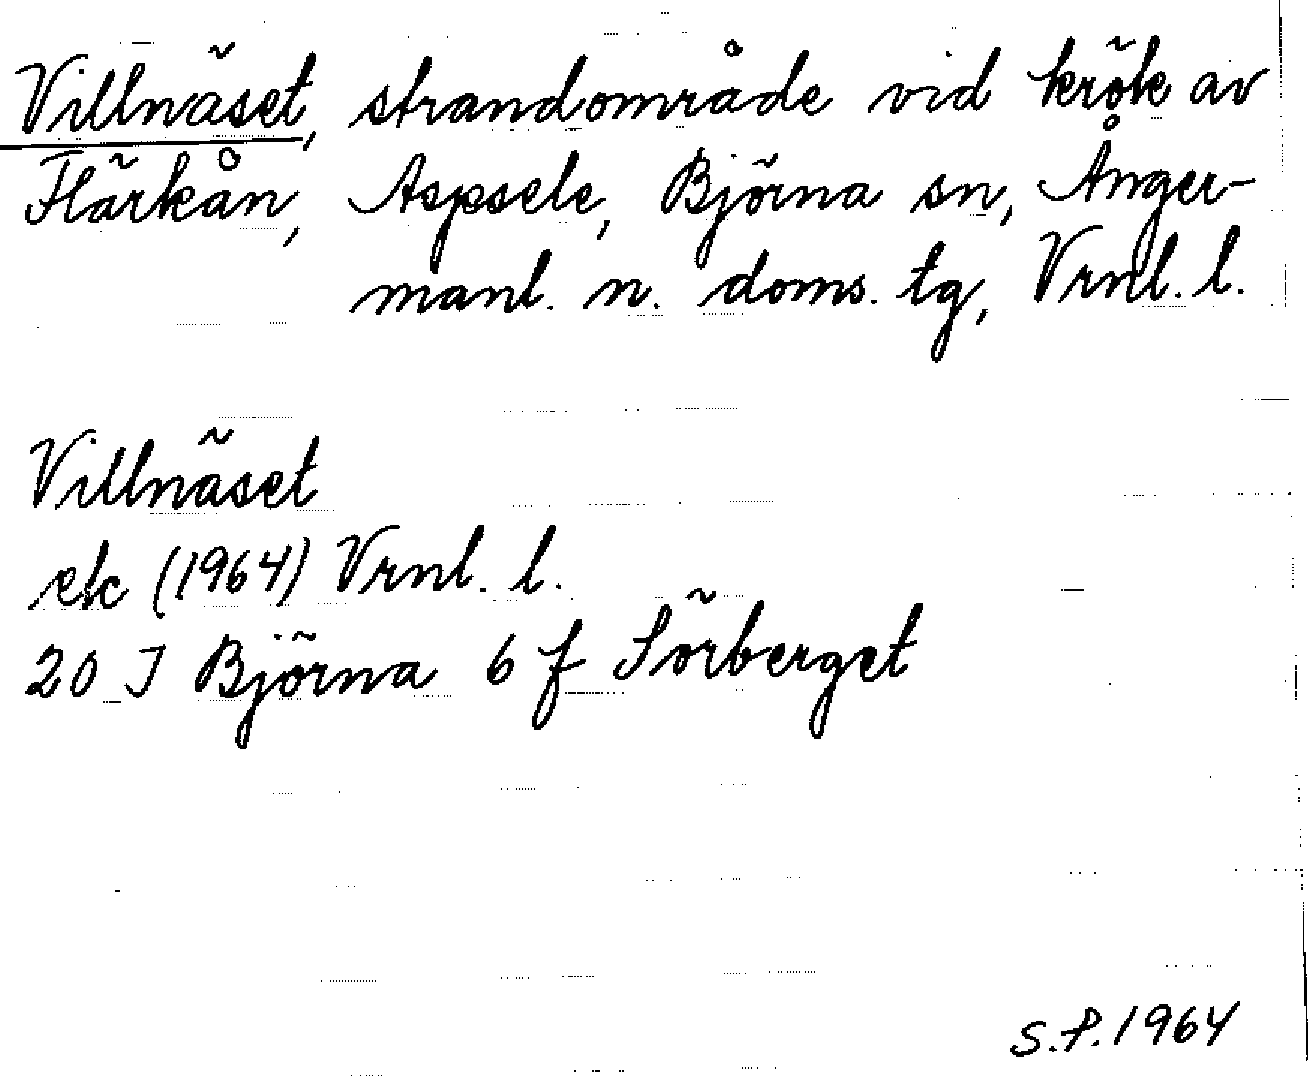 Villnäset, strandområde vid krök av
Flärkån, Aspsele, Björna sn, Ånger-
manl. n. doms. tg, Vrnl. l.
Villnäset
ek (1964) Vrnl. l.
20 J Björna 6 f Sörberget
S.P. 1964